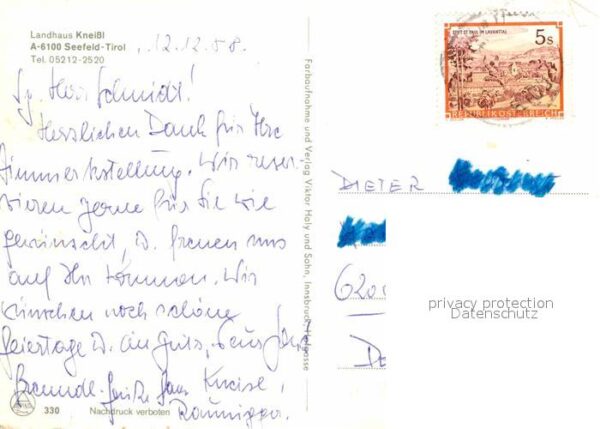 Landhaus Kneißl
A-6100 Seefeld-Tirol
Tel. 05212-2520
12.12.88.
Sg. Herr Schmidt!
Herzlichen Dank für Ihre
Zimmerbestellung. Wir reser-
vieren gerne für Sie wie
gewünscht, u. freuen uns
auf Ihr Kommen. Wir
wünschen noch schöne
Feiertage u. ein gutes, neues Jahr!
Kneissl,
330
Nachdruck verboten
Farbaufnahme und Verlag Viktor Holy und Sohn, Innsbruck
STIFT ST. PAUL IM LAVANTTAL
5s
REPUBLIK ÖSTERREICH
DIETER
privacy protection
Datenschutz